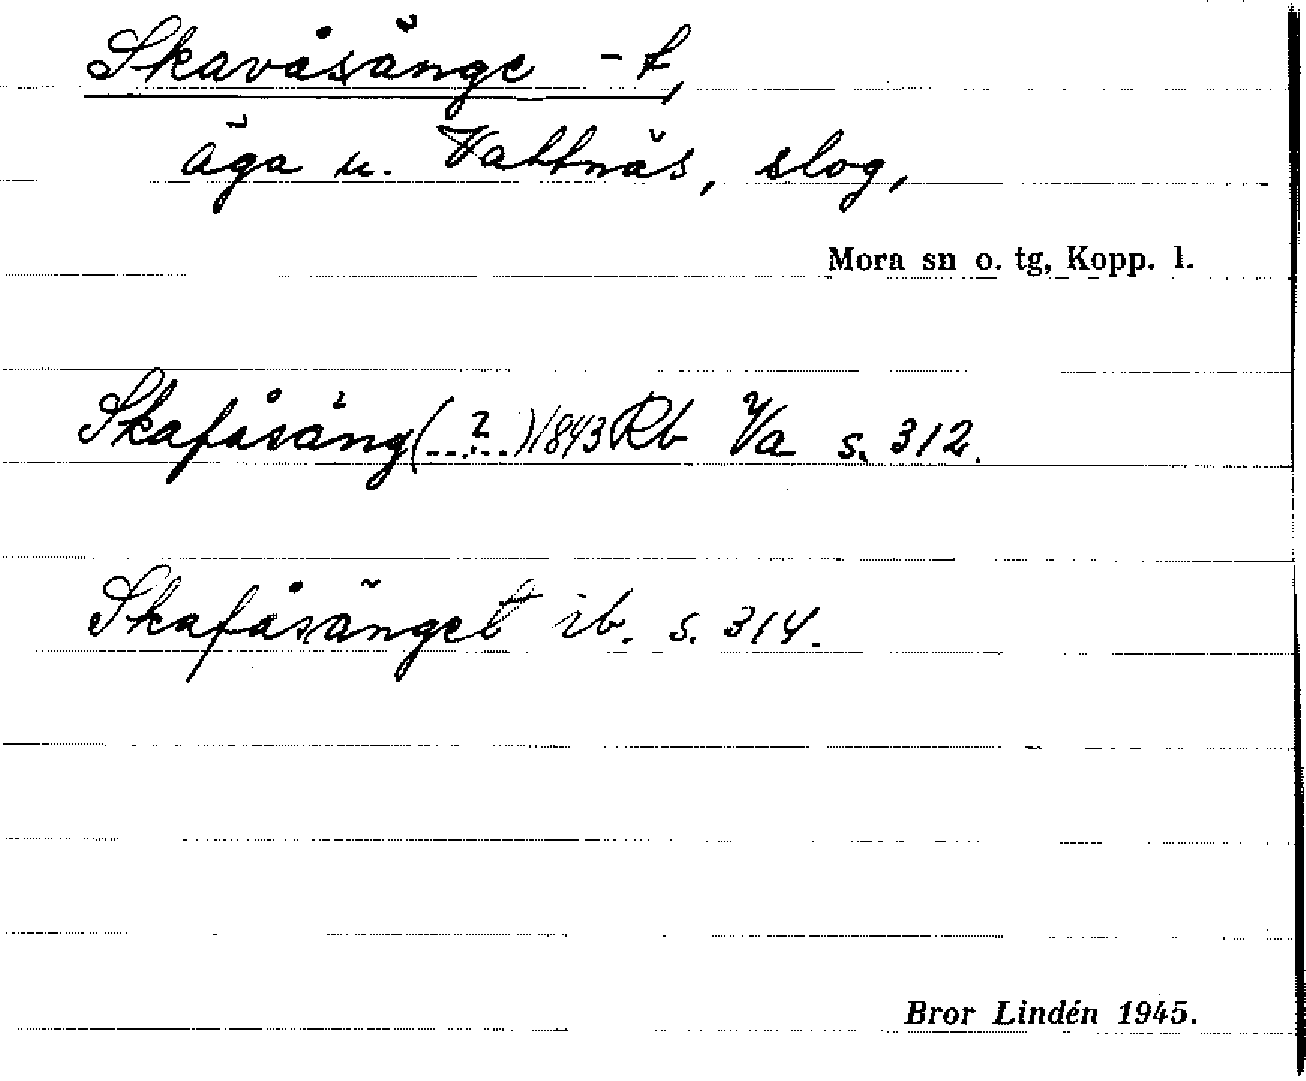 Skavåsänge -t,
äga u. Vattnäs, slog,
Mora sn o. tg, Kopp. l.
Skafåsäng (..?..) 1843 Rb Va s. 312.
Skafåsänget ib. s. 314.
Bror Lindén 1945.